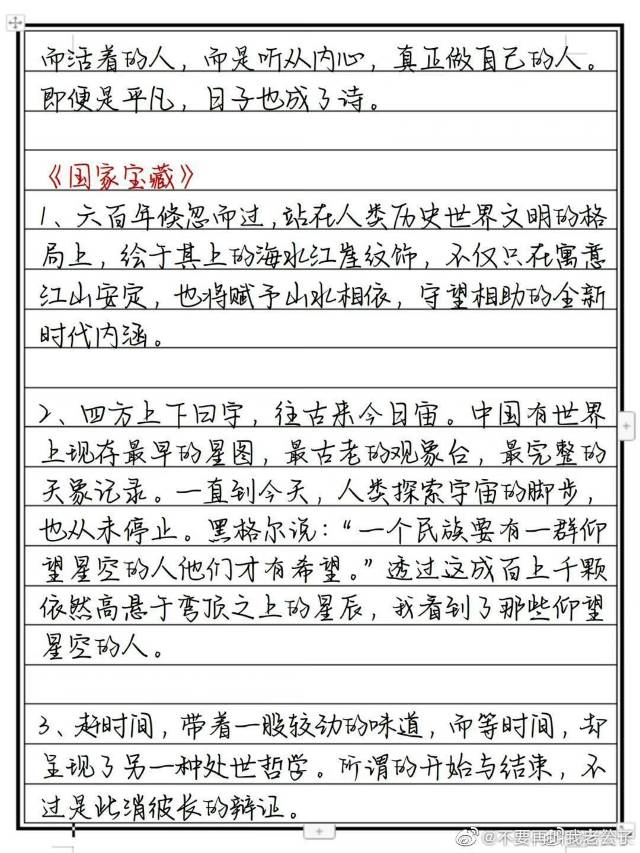 而活着的人，而是听从内心，真正做自己的人。
即便是平凡，日子也成了诗。
《国家宝藏》
1、六百年倏忽而过，站在人类历史世界文明的格
局上，绘于其上的海水江崖纹饰，不仅只在寓意
江山安定，也将赋予山水相依，守望相助的全新
时代内涵。
2、四方上下曰宇，往古来今曰宙。中国有世界
上现存最早的星图，最古老的观象台，最完整的
天象记录。一直到今天，人类探索宇宙的脚步，
也从未停止。黑格尔说：“一个民族要有一群仰
望星空的人他们才有希望。”透过这成百上千颗
依然高悬于穹顶之上的星辰，我看到了那些仰望
星空的人。
3、赶时间，带着一股较劲的味道，而等时间，却
呈现了另一种处世哲学。所谓的开始与结束，不
过是此消彼长的辩证。
@不要再叫我老公子